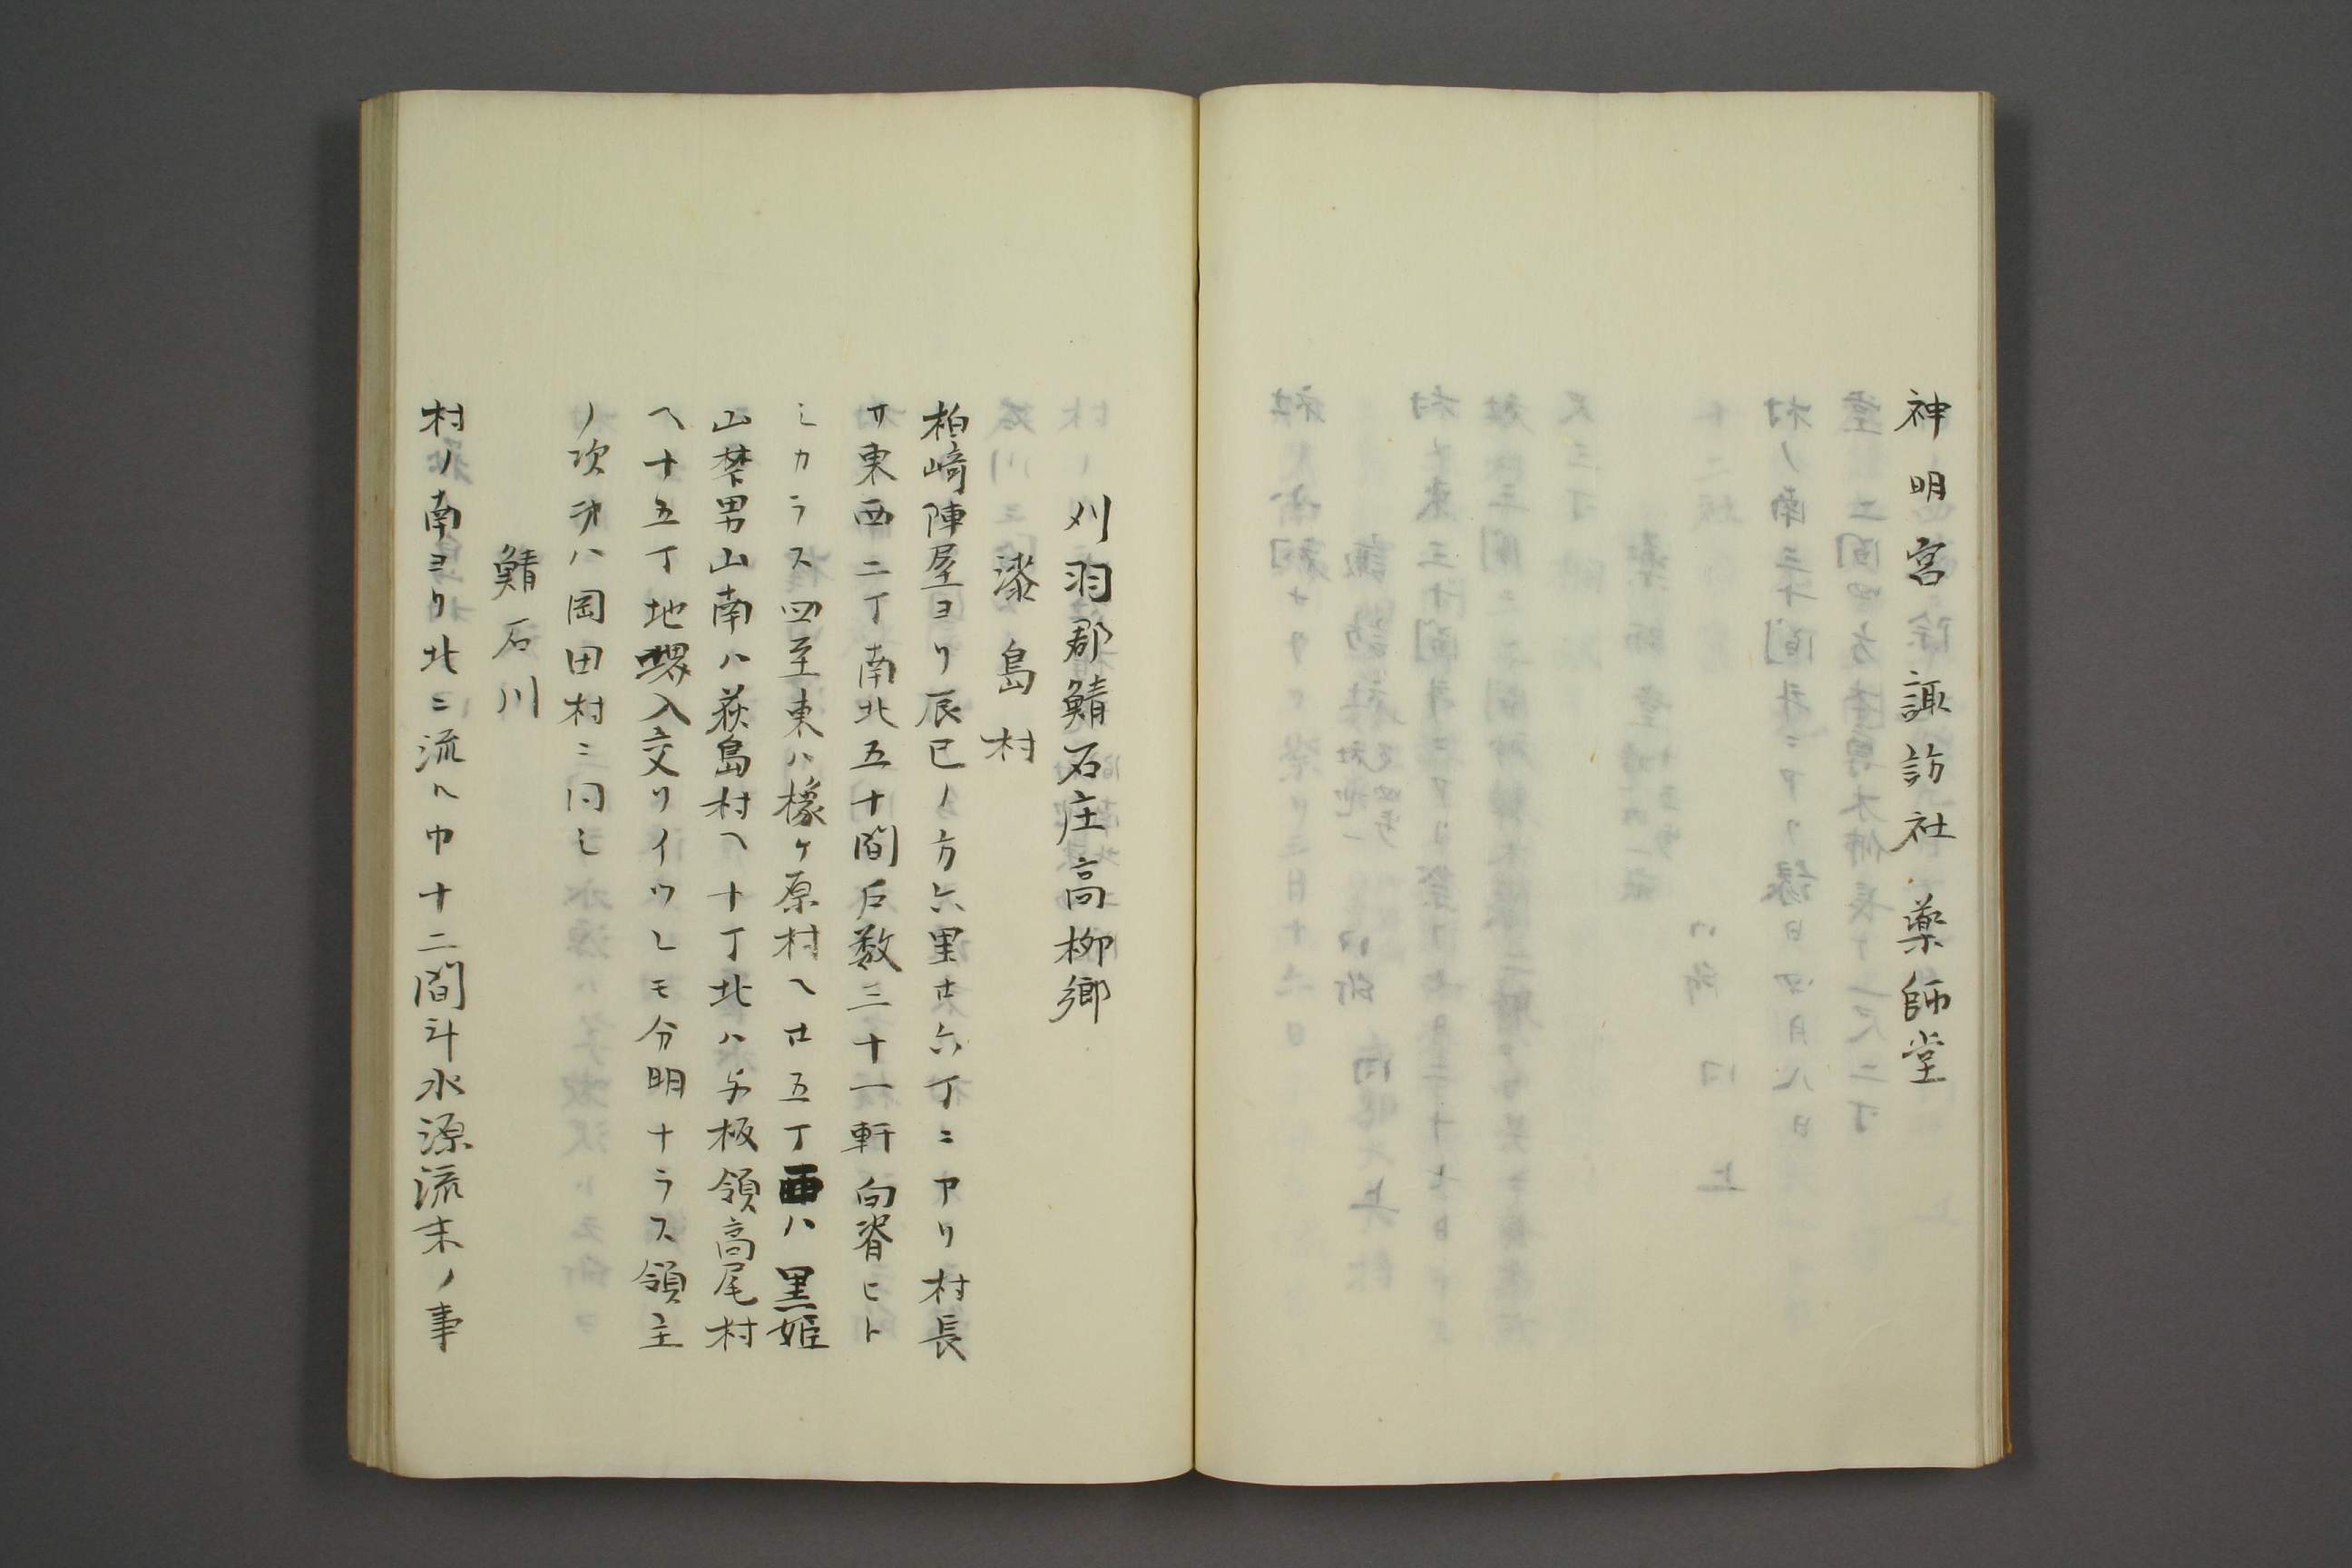 神明宮 諏訪社 薬師堂
刈羽郡鯖石庄高柳郷
漆島村
柏崎陣屋ヨリ辰巳ノ方六里廿六丁ニアリ村長
サ東西二丁南北五十間戸数三十一軒向背ヒト
シカラス四至東ハ橡ケ原村ヘ廿五丁西ハ黒姫
山梺男山南ハ荻島村ヘ十丁北ハ与板領高尾村
ヘ十五丁地堺入交リイツレモ分明ナラス領主
ノ次第ハ岡田村ニ同シ
鯖石川
村ノ南ヨリ北ニ流ル巾十二間斗水源流末ノ事